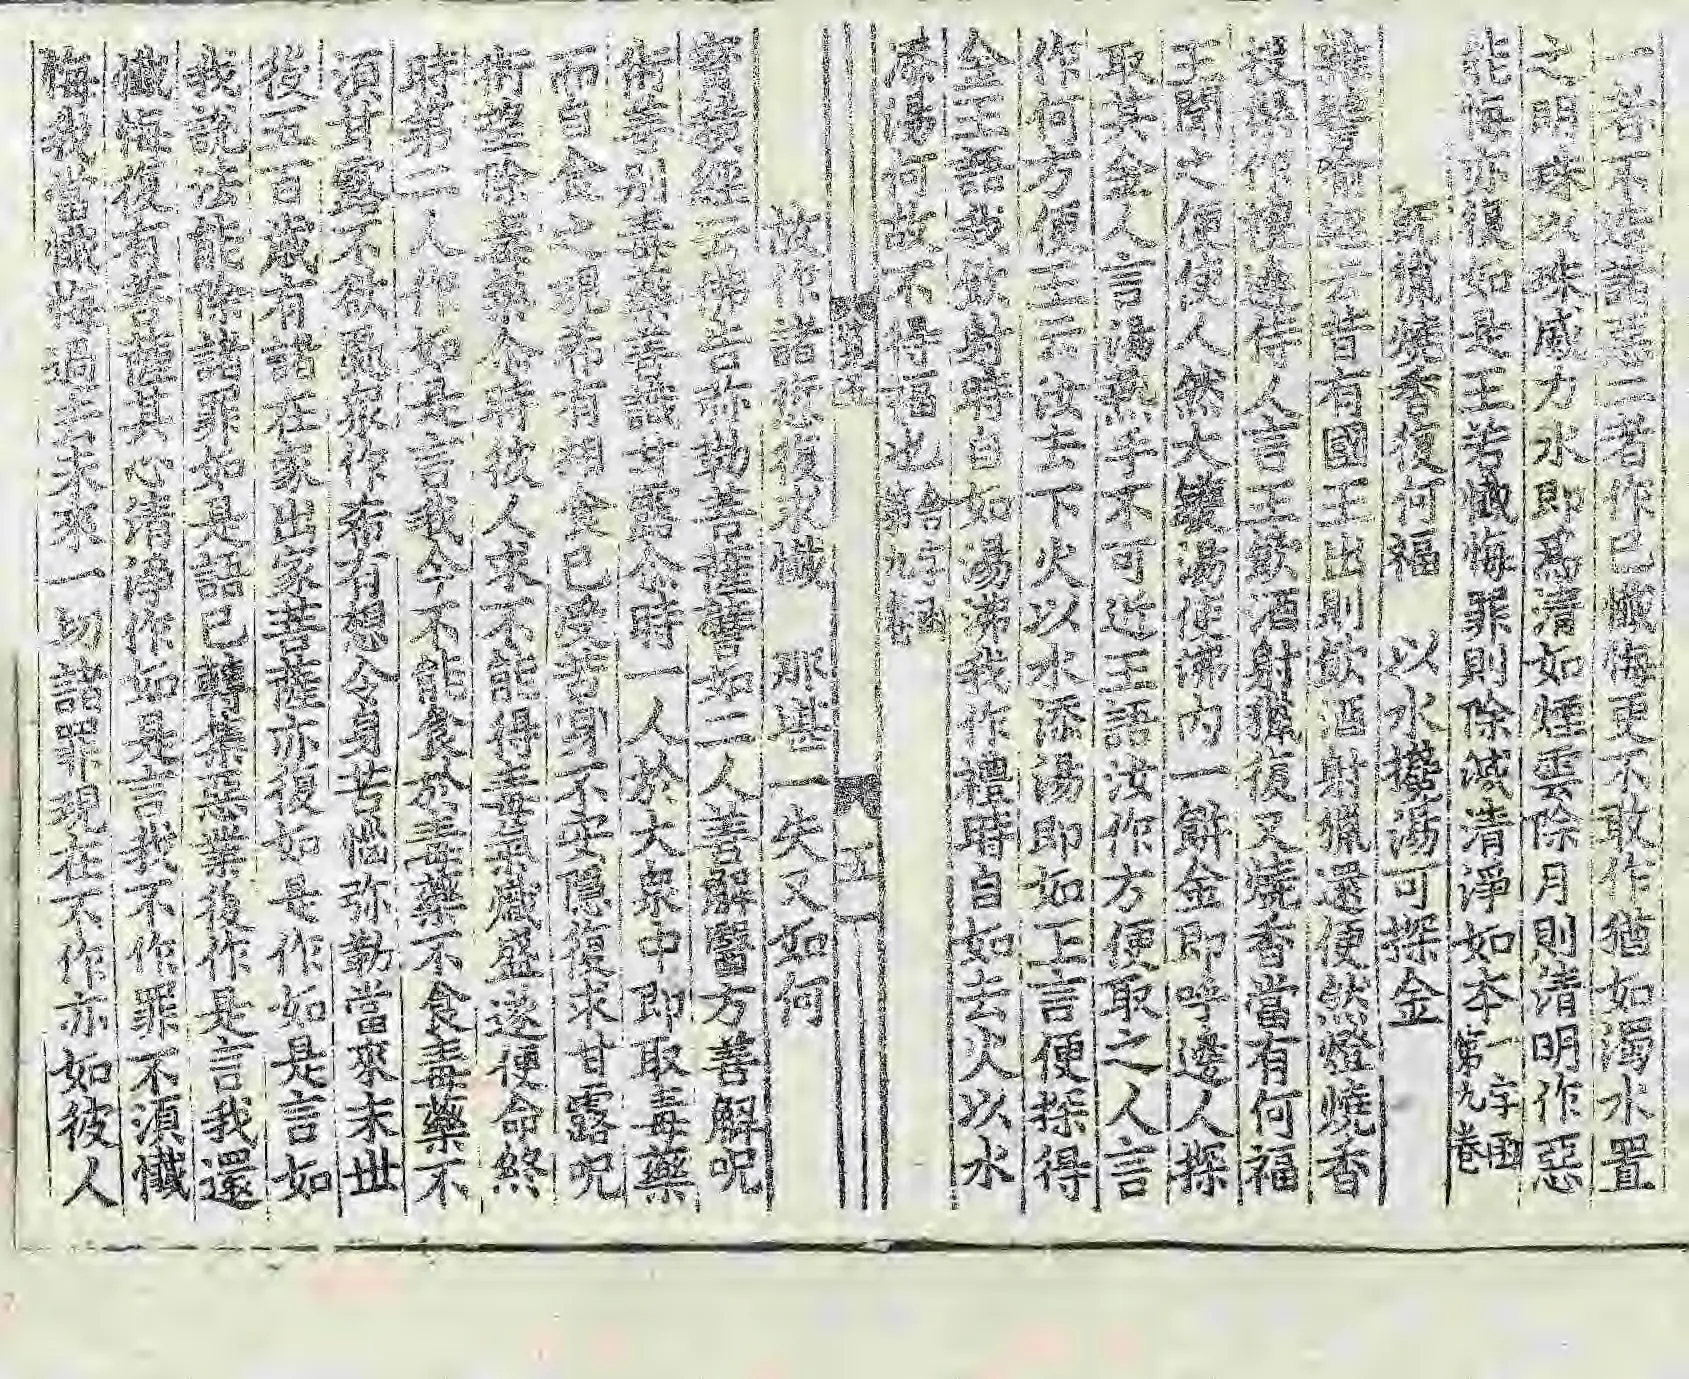 一者不造諸惡二者作已懺悔更不敢作猶如濁水置
之明珠以珠威力水即爲清如煙雲除月則清明作惡
能悔亦復如是王若懺悔罪則除滅清淨如本一字函第九卷
射獵燒香復何福　以水攙湯可探金
雜譬喻經云昔有國王出則飲酒射獵還便然燈燒香
技樂作禮邊侍人言王飲酒射獵復又燒香當有何福
王聞之便使人然大鑊湯使沸內一餅金即呼邊人探
取其金人言湯熱手不可近王語汝作方便取之人言
作何方便王云汝去下火以水添湯即如王言便探得
金王語我飲射時自如湯沸我作禮時自如去火以水
添湯何故不得福也合字函第九卷
五一
故作諸愆復求懺　那堪一失又如何
寳積經云佛告弥勒菩薩譬如二人善解醫方善解呪
術等別毒藥善識甘露尒時一人於大衆中即取毒藥
而自食之現希有想食已受苦身不安隱復求甘露呪
術並除毒藥尒時彼人求不能得毒氣熾盛遂便命終
時第二人作如是言我今不能食於毒藥不食毒藥不
須甘露不欲愚衆作希有想令身苦惱弥勒當來末世
後五百歲有諸在家出家菩薩亦復如是作如是言如
我說法能除諸罪如是語已轉集惡業後作是言我還
懺悔復有菩薩其心清淨作如是言我不作罪不須懺
悔我當懺悔過去未來一切諸罪現在不作亦如彼人